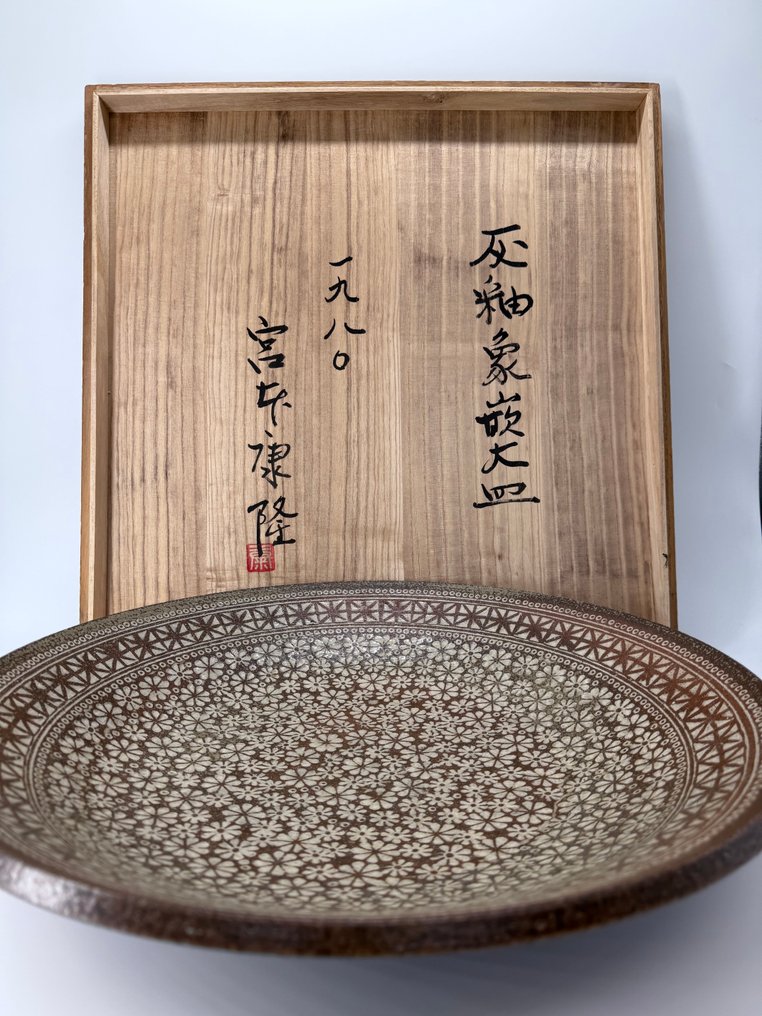 灰釉象嵌大皿
一九八〇
宮本康隆